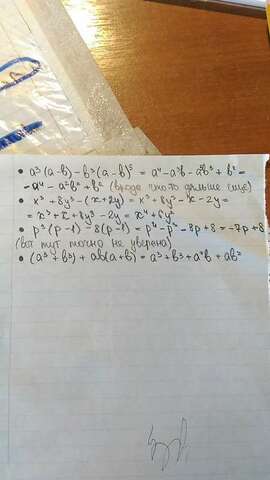 • a³(a-b) - b³(a-b)³ = a⁴ - a³b - ab³ + b⁴ =
- a⁴ - a²b² + b² (вроде что-то дальше еще)
• x³ + 8y³ - (x + 2y) = x³ + 8y³ - x - 2y =
= x³ + x + 8y³ - 2y = x⁴ + 6y²
• p³(p - 1) - 8(p - 1) = p⁴ - p³ - 8p + 8 = -7p + 8
(вот тут точно не уверена)
• (a³ + b³) + ab(a + b) = a³ + b³ + a²b + ab²